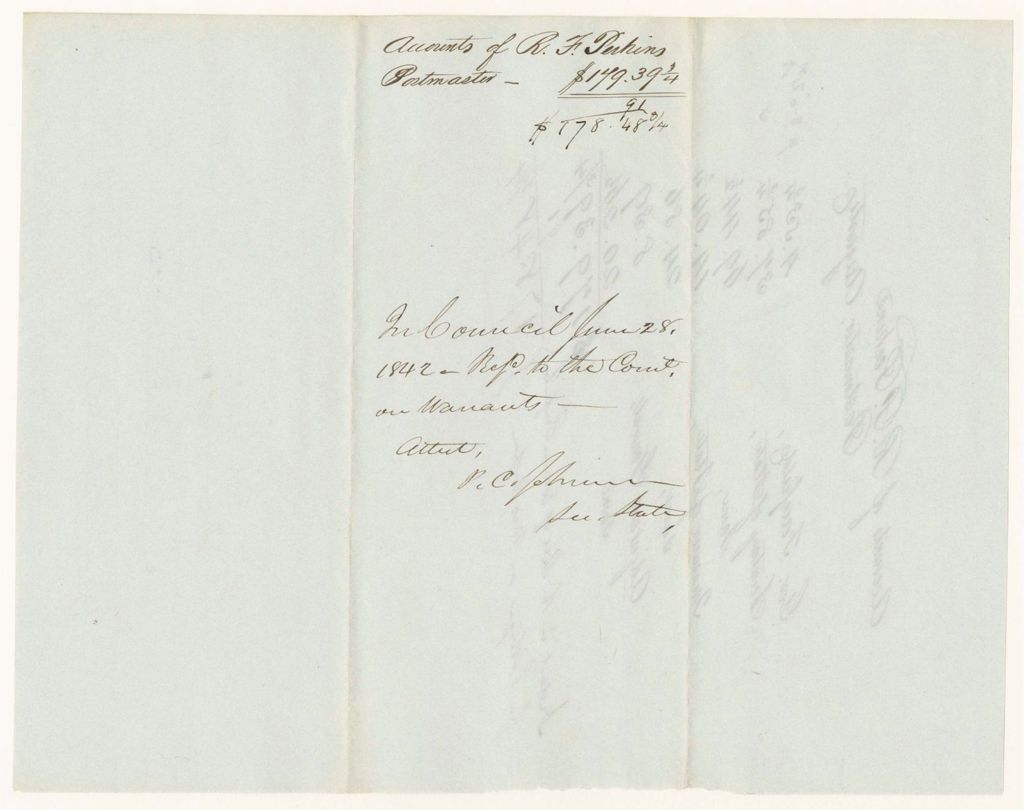 Accounts of R. F. Perkins
Postmaster — $179.39 3/4
91
$178.48 3/4
In Council June 28,
1842 - Refd. to the Comt.
on Warrants —
Attest,
P. C. Johnson
Sec. State,